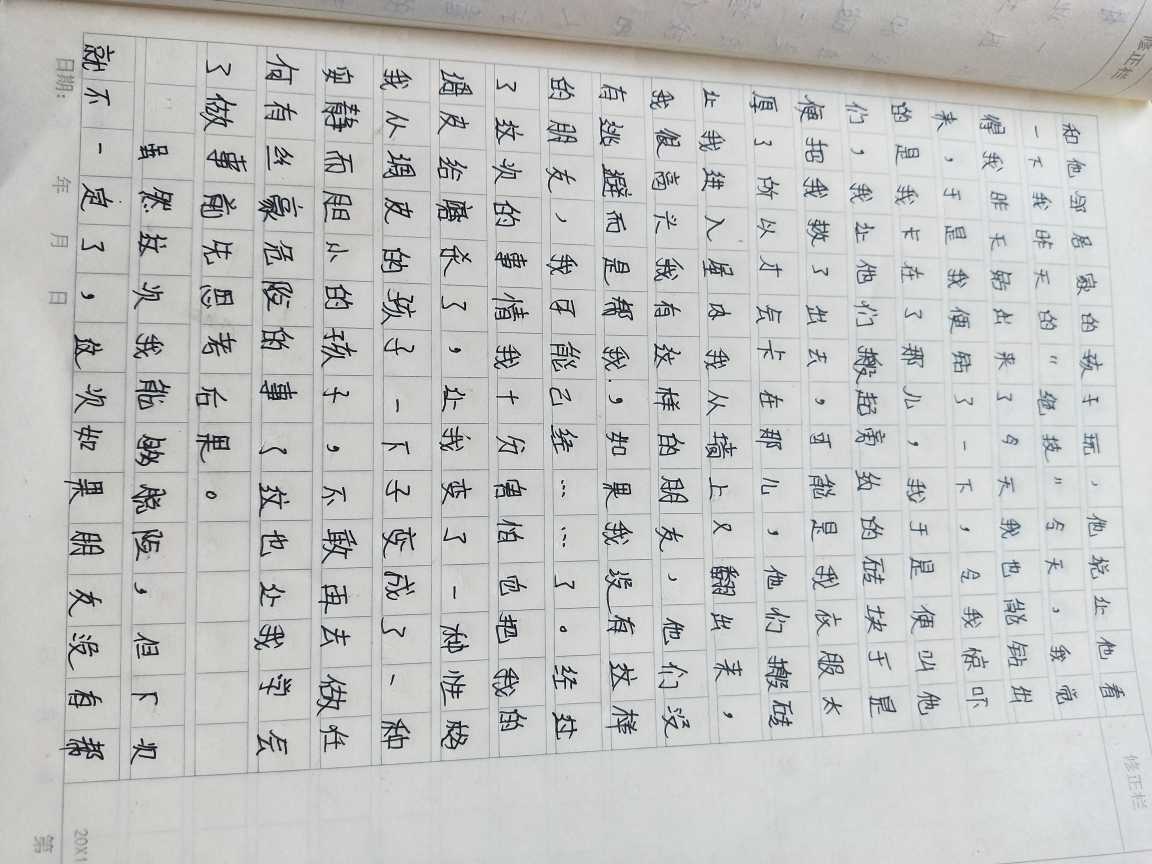 修正栏
和他邻居家的孩子玩，他说让他看
一下我昨天的"绝技"今天，我觉
得我昨天钻出来了今天我也能钻出
来，于是我便钻了一下，令我惊吓
的是我卡在了那儿，我于是便叫他
们，我让他们搬起旁边的砖块于是
便把我救了出去，可能是我衣服太
厚了所以才会卡在那儿，他们搬砖
让我进入屋内我从墙上又翻出来，
我很高兴我有这样的朋友，他们没
有逃避而是帮我，如果我没有这样
的朋友，我可能已经……了。经过
了这次的事情我十分害怕也把我的
调皮给磨杀了，让我变了一种性格
我从调皮的孩子一下子变成了一种
安静而胆小的孩子，不敢再去做任
何有丝毫危险的事了这也让我学会
了做事前先思考后果。
虽然这次我能够脱险，但下次
就不一定了，这次如果朋友没有帮
日期： 年 月 日
修正栏
第
20X1